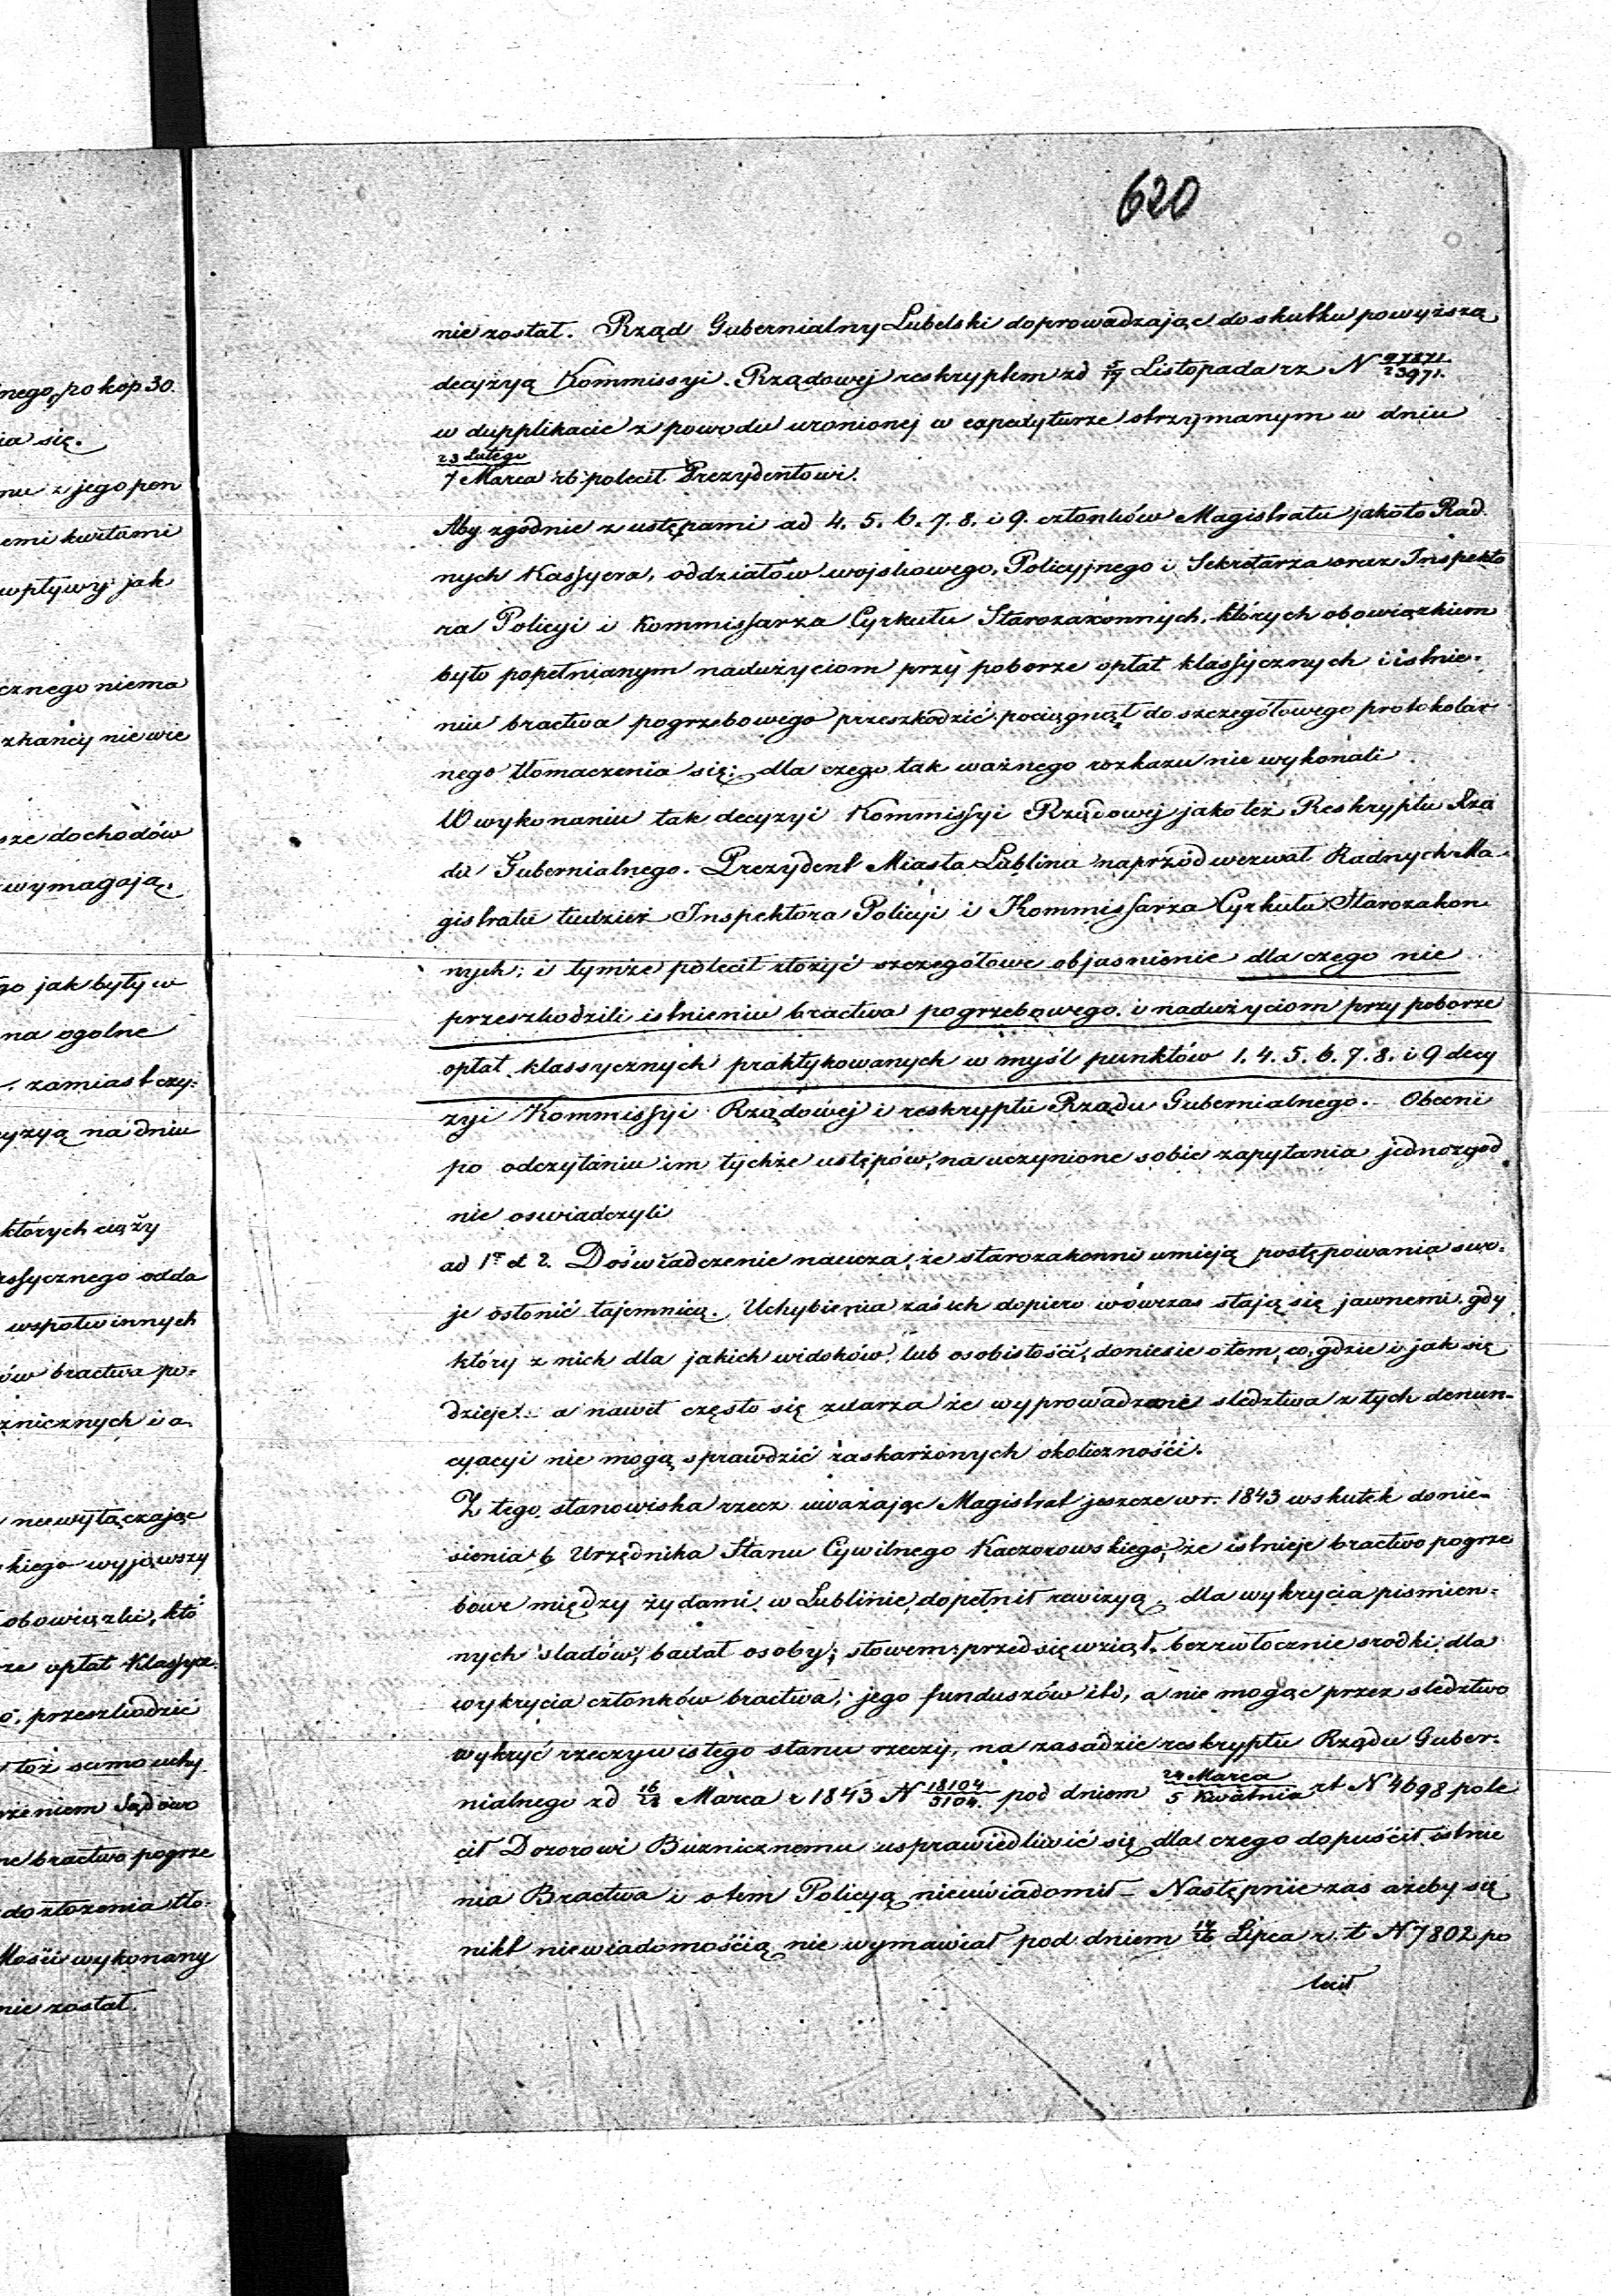 620
nie został. Rząd Gubernialny Lubelski doprowadzając do skutku powyższą
decyzyą Kommissyi Rządowej reskryptem zd 5/17 Listopada rz N 97871/23971.
w dupplikacie z powodu uronionej w expedyturze otrzymanym w dniu
23 Lutego
7 Marca rb: polecił Prezydentowi.
Aby zgodnie z ustępami ad 4. 5. 6. 7. 8. i 9. członków Magistratu jakoto Rad
nych Kassyera, oddziałów wojskowego, Policyjnego i Sekretarza oraz Inspekto
ra Policyi i Kommissarza Cyrkułu Starozakonnych, których obowiązkiem
było popełnianym nadużyciom przy poborze opłat klassycznych i istnie-
niu bractwa pogrzebowego przeszkodzić pociągnął do szczegółowego protokolar
nego tłomaczenia się; dla czego tak ważnego rozkazu nie wykonali
W wykonaniu tak decyzyi Kommissyi Rządowej jako też Reskryptu Rzą
du Gubernialnego. Prezydent Miasta Lublina naprzód wezwał Radnych Ma-
gistratu tudzież Inspektora Policyi i Kommissarza Cyrkułu Starozakon
nych; i tymże polecił złożyć szczegółowe objasnienie dla czego nie
przeszkodzili istnieniu bractwa pogrzebowego i nadużyciom przy poborze
opłat klassycznych praktykowanych w myśl punktów 1. 4. 5. 6. 7. 8. i 9 decy
zyi Kommissyi Rządowej i reskryptu Rządu Gubernialnego. Obecni
po odczytaniu im tychże ustępów, na uczynione sobie zapytania jednozgod
nie oswiadczyli
ad 1o et 2. Doświadczenie naucza, że starozakonni umieją postępowania swo-
je osłonić tajemnicą. Uchybienia zaś ich dopiero wówczas stają się jawnemi, gdy
który z nich dla jakich widoków, lub osobistości, doniesie o tem, co, gdzie i jak się
dzieje: a nawet często się zdarza że wyprowadzone sledztwa z tych denun-
cyacyi nie mogą sprawdzić zaskarżonych okoliczności.
Z tego stanowiska rzecz uważając Magistrat jeszcze w r. 1843 wskutek donie-
sienia b Urzędnika Stanu Cywilnego Kaczorowskiego, że istnieje bractwo pogrze
bowe między żydami w Lublinie, dopełnił rewizyą, dla wykrycia pismien-
nych sladów, badał osoby; słowem: przedsięwziął bezzwłocznie srodki dla
wykrycia członków bractwa, jego funduszów itd, a nie mogąc przez sledztwo
wykryć rzeczywistego stanu rzeczy, na zasadzie reskryptu Rządu Guber-
nialnego zd 16/28 Marca r 1843 N 18104/5104. pod dniem 24 Marca/5 Kwietnia rt N 4698 pole
cił Dozorowi Bużnicznemu usprawiedliwić się dla czego dopuścił istnie
nia Bractwa i o tem Policyą nieuwiadomił – Następnie zas ażeby się
nikt niewiadomością nie wymawiał pod dniem 14/26 Lipca r. t N 7802 po
lecił
nego, po kop 30.
ia się.
nu z jego pen
emi kwitami
wpływy jak
cznego niema
zkańcy nie wie
sze dochodów
wymagają.
go jak były w
na ogolne
zamiast czy-
yzyą na dniu
których ciąży
assycznego odda
wspołwinnych
ów bractwa po-
znicznych i a
niewyłączając
kiego wyjąwszy
obowiązki, któ
ze opłat Klassycz
o. przeszkodzić
toż samo uchy
żeniem Sądow
ne bractwo pogrze
do złożenia tło-
łości wykonany
nie został.